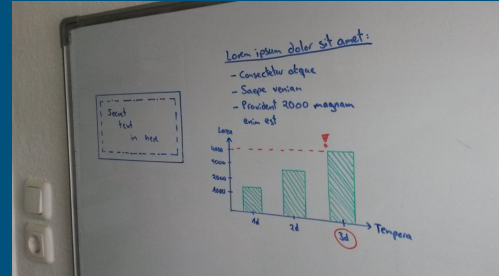 Lorem ipsum dolor sit amet:
- Consectetur atque
- Saepe veniam
- Provident 2000 magnam
enim est
Secret
text
in here
4000
3000
2000
1000
!
1d
2d
3d
Tempora